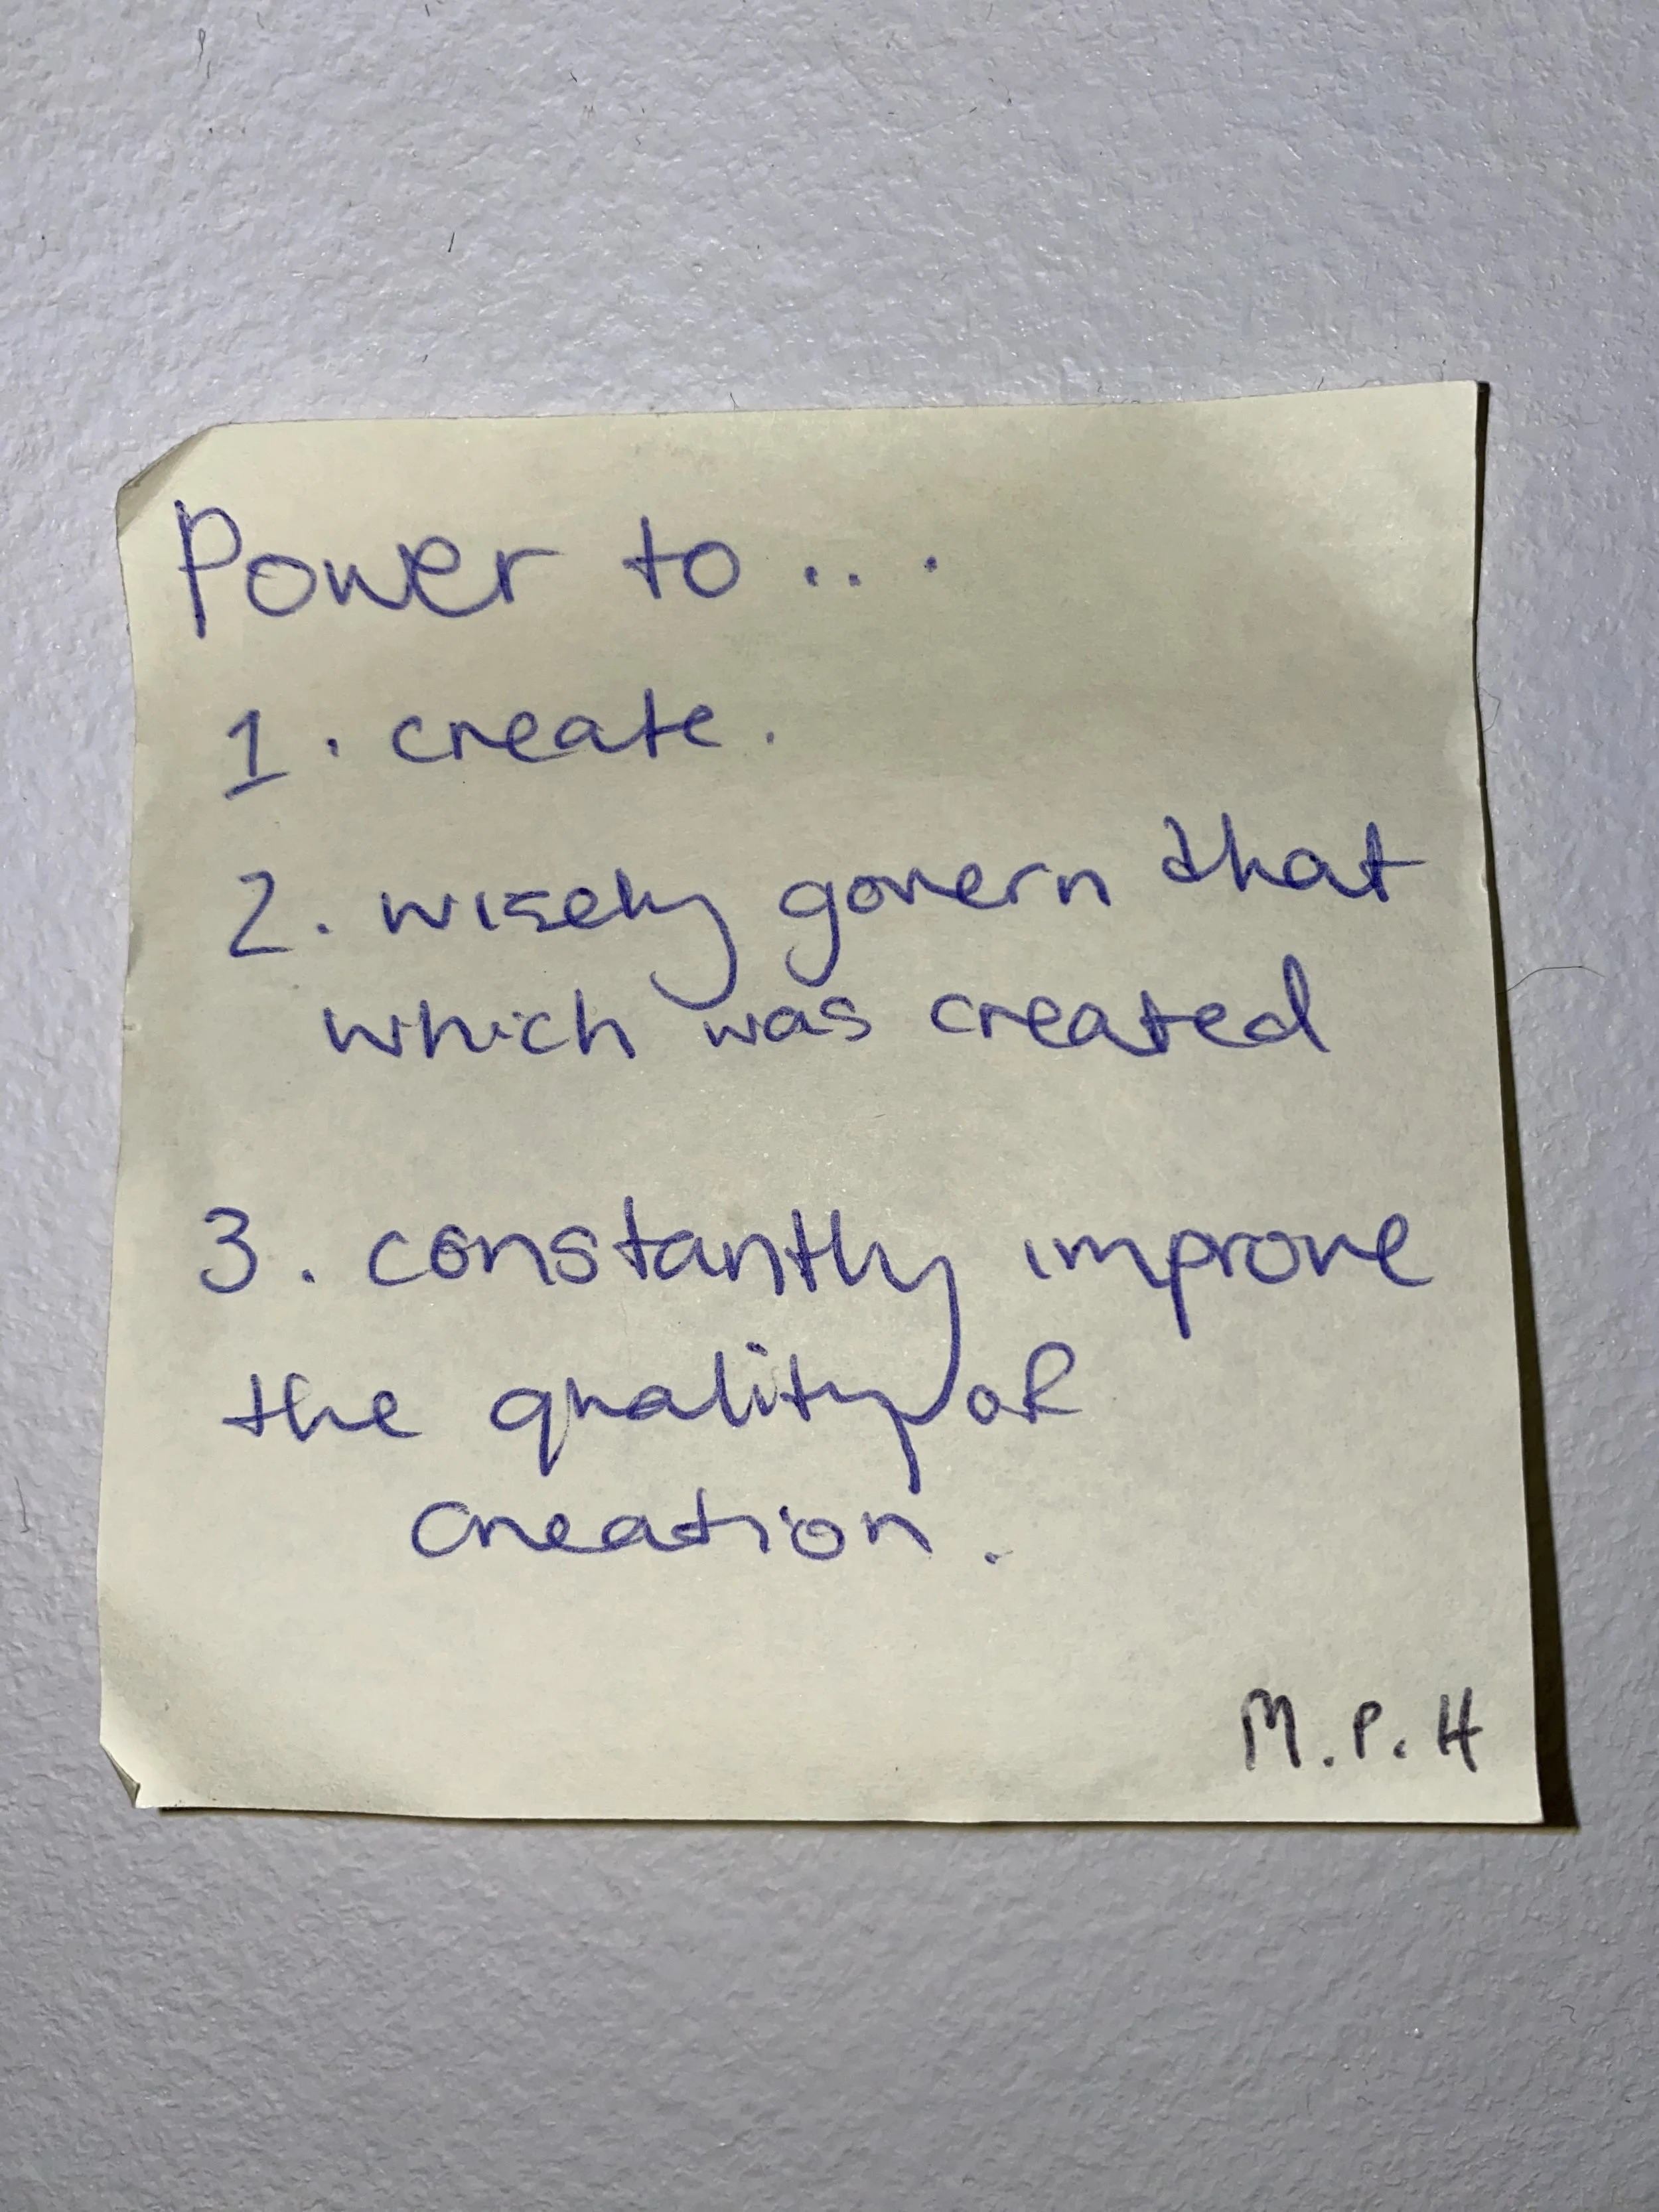 Power to ...
1. create.
2. wisely govern that
which was created
3. constantly improve
the quality of
creation.
M.P.H